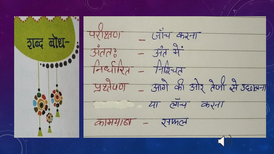 शब्द बोध-
परीक्षण - जाँच करना
अंततः - अंत में
निर्धारित - निश्चित
प्रक्षेपण - आगे की ओर तेजी से उछालना
या लाँच करना
कामयाब - सफल